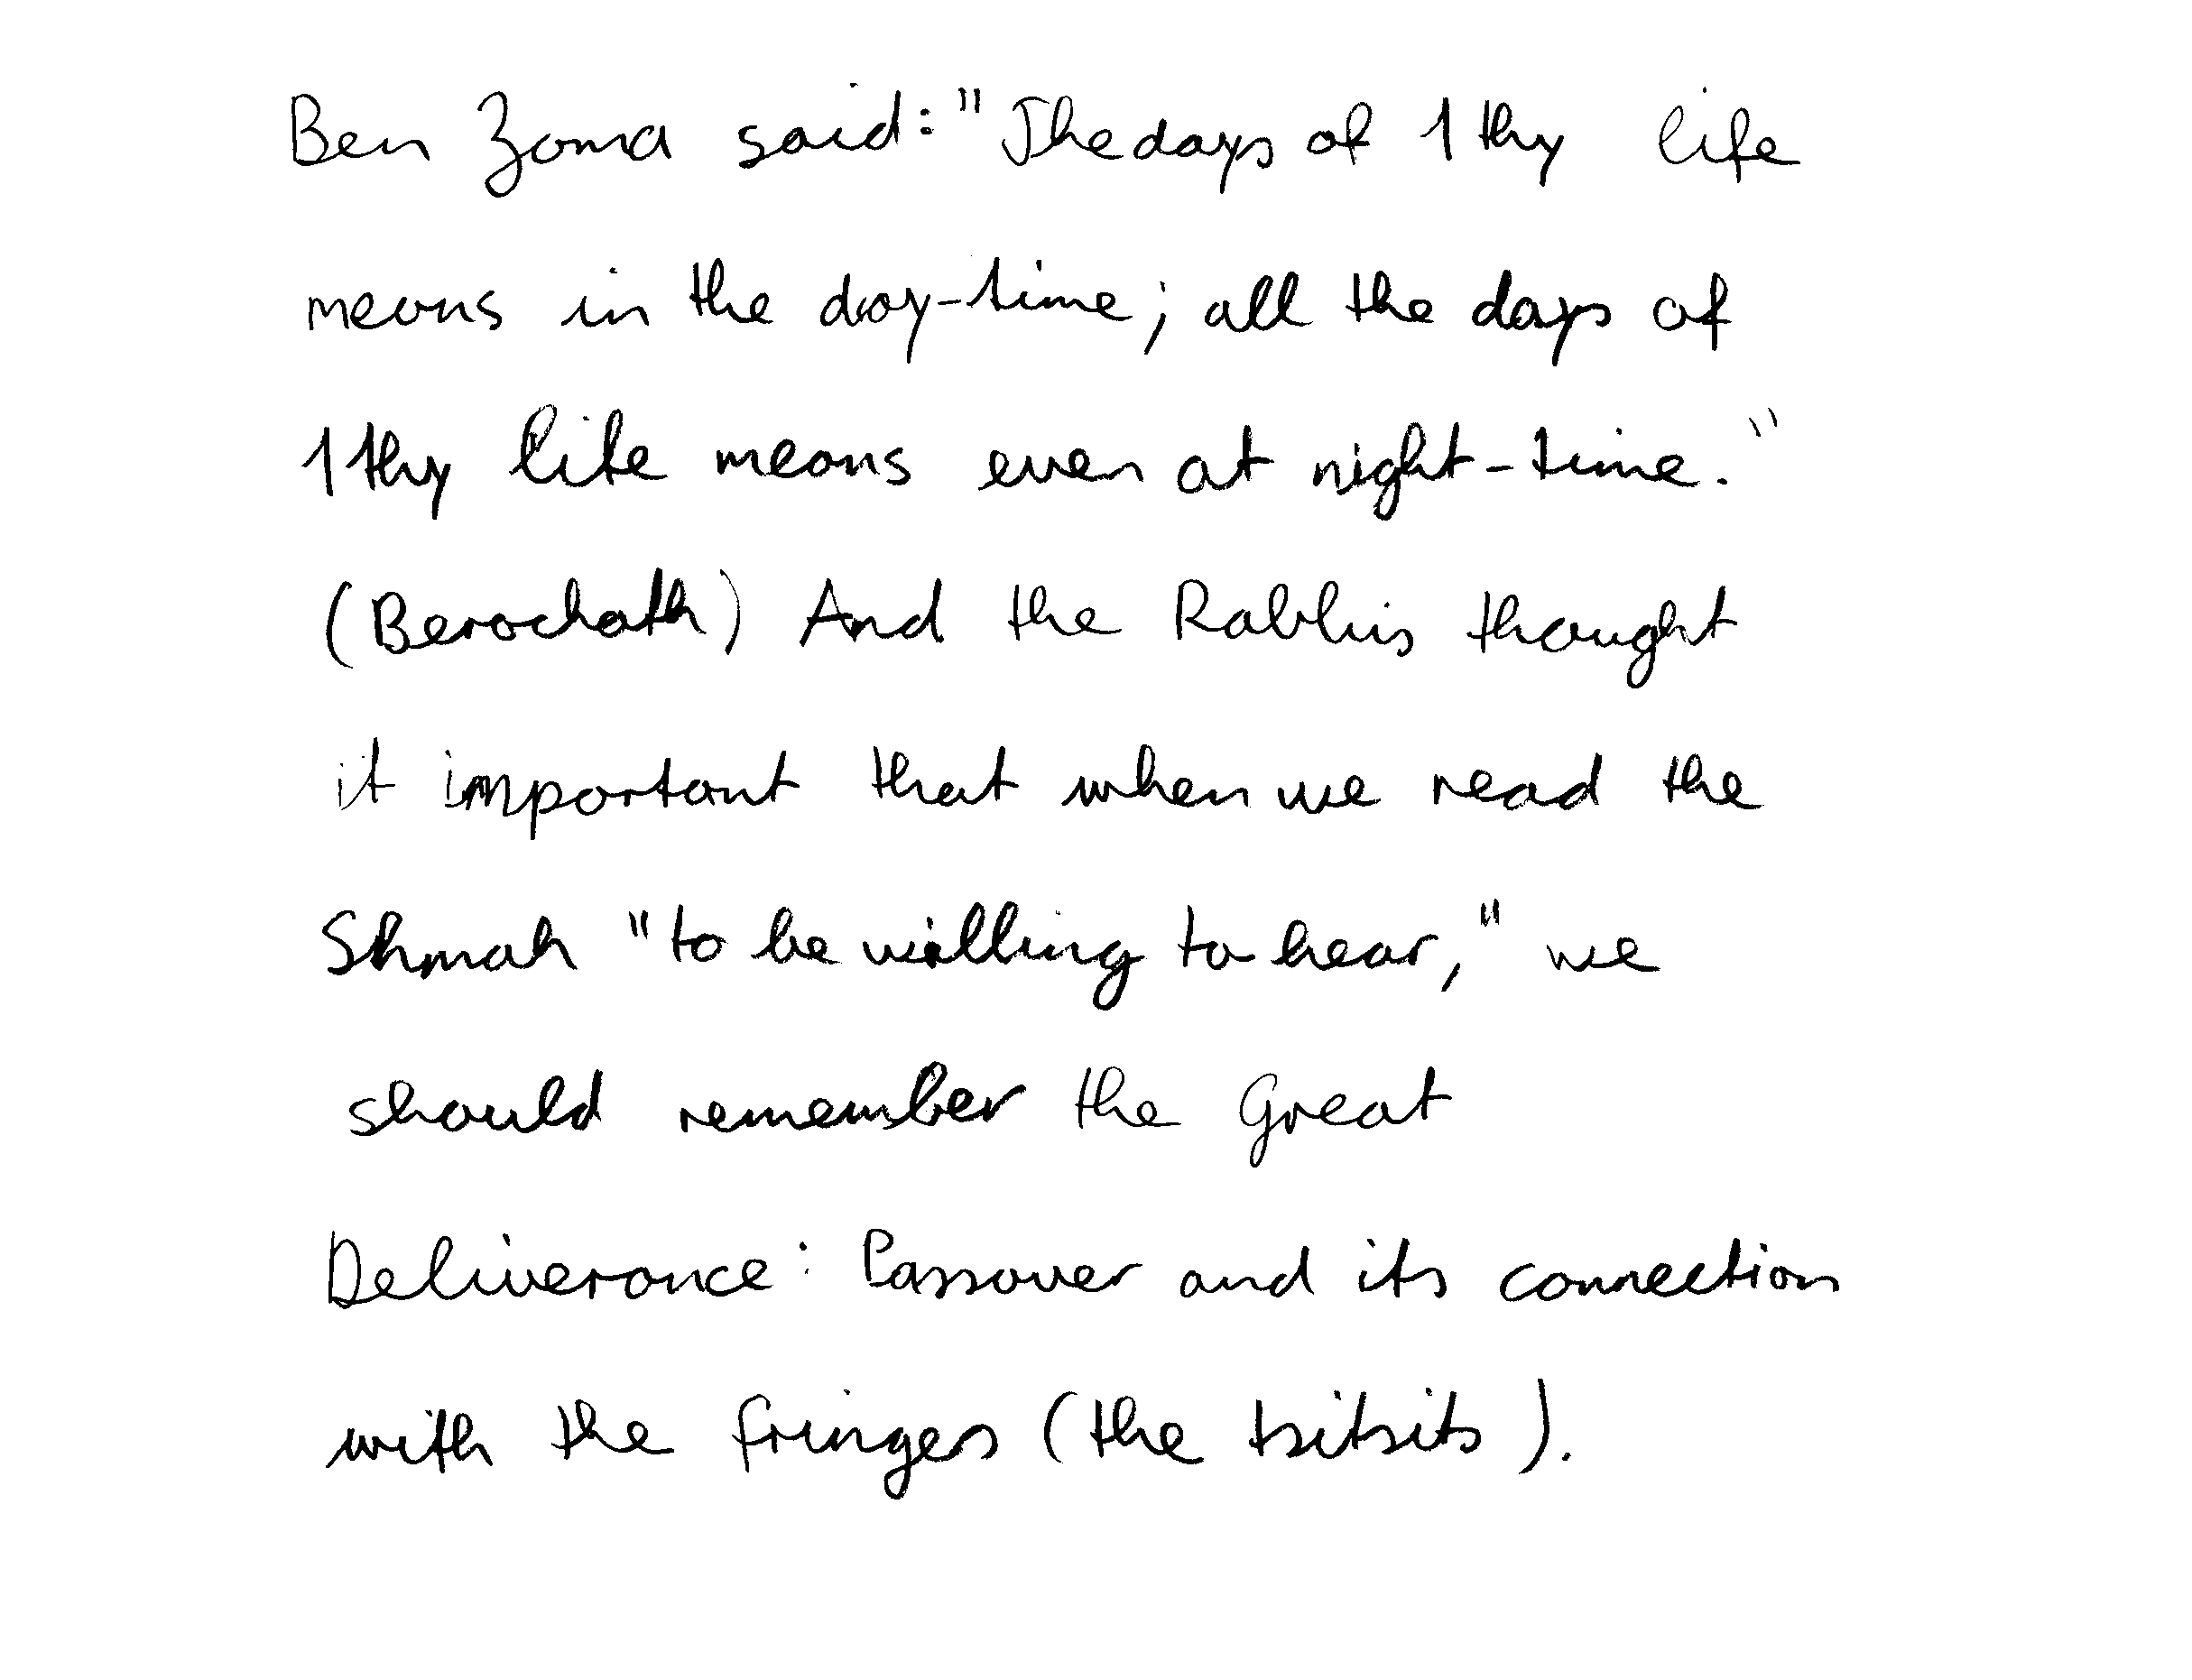 Ben Zoma said: "The days of 1 thy life
means in the day-time; all the days of
1 thy life means even at night-time."
(Berochoth) And the Rabbis thought
it important that when we read the
Shmah "to be willing to hear," we
should remember the Great
Deliverance: Passover and its connection
with the fringes (the tsitsits).